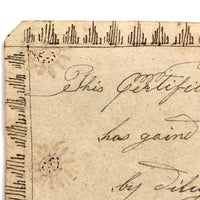 This Certifi
has gaind
by dili